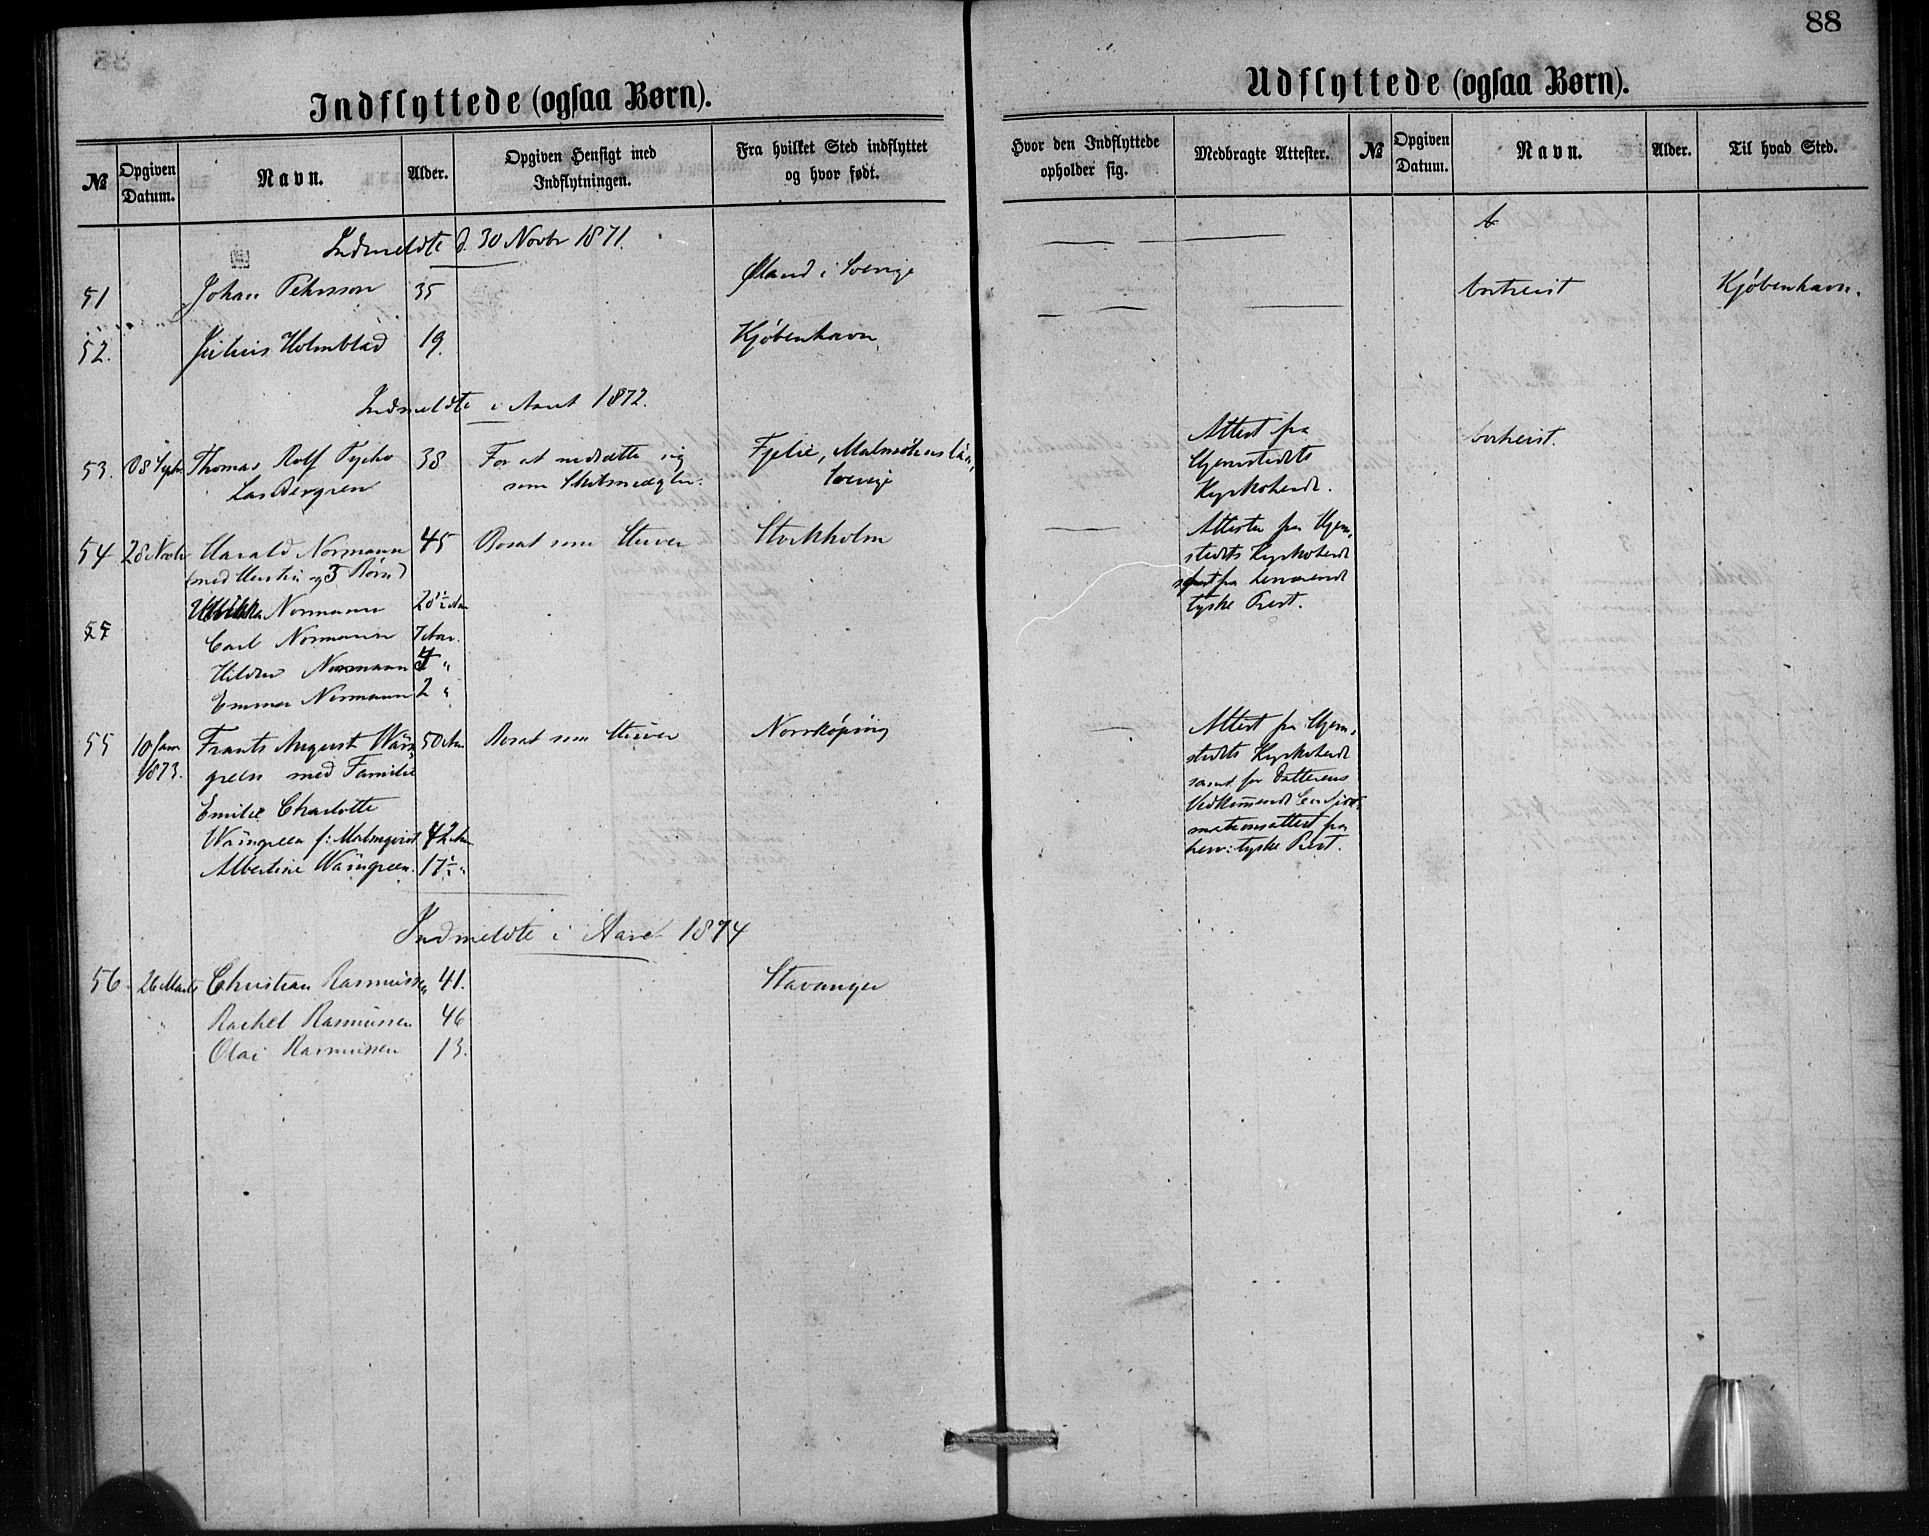 88
Indflyttede (ogsaa Børn).
Udflyttede (ogsaa Børn).
№
Opgiven Datum.
Navn.
Alder.
Opgiven Hensigt med Indflytningen.
Fra hvilket Sted indflyttet og hvor født.
Hvor den Indflyttede opholder sig.
Medbragte Attester.
№
Opgiven Datum.
Navn.
Alder.
Til hvad Sted.
Indmeldte d. 30 Novbr 1871.
51 Johan Pehrsson 35 Øland i Sverige bortreist Kjøbenhavn.
52. Julius Holmblad 19. Kjøbenhavn.
Indmeldte i Aaret 1872.
53. Thomas Rolf Tycho 38 For at nedsætte sig Fjelie, Malmöhus län, Attest fra bortreist.
Landergren som Skibsmægler. Sverige Hjemstedets
Kyrkoherde.
54 28 Novbr Harald Normann 45 Bosat som Stuver Stockholm Attester fra Hjem-
(med Hustru og 3 Børn) stedets Kyrkoherde
Normann 28½ Aar samt fra herværende
55 Carl Normann 7 Aar. tyske Prest.
Hilda Normann 4 "
Emma Normann 2 "
55 10 Jan 1873. Frants August Wän- 50 Aar Bosat som Stuver Norrköping Attest fra Hjem-
green med Familie stedets Kyrkoherde
Emilie Charlotte samt for Datterens
Wängreen f: Malmqvist 42 Aar Vedkommende Confir-
Albertine Wängreen. 17½ " mationsattest fra
herv: tyske Prest.
Indmeldte i Aaret 1874
56. 26 Marts Christian Rasmussen 41. Stavanger
" Rachel Rasmussen 46
Olai Rasmussen 13.